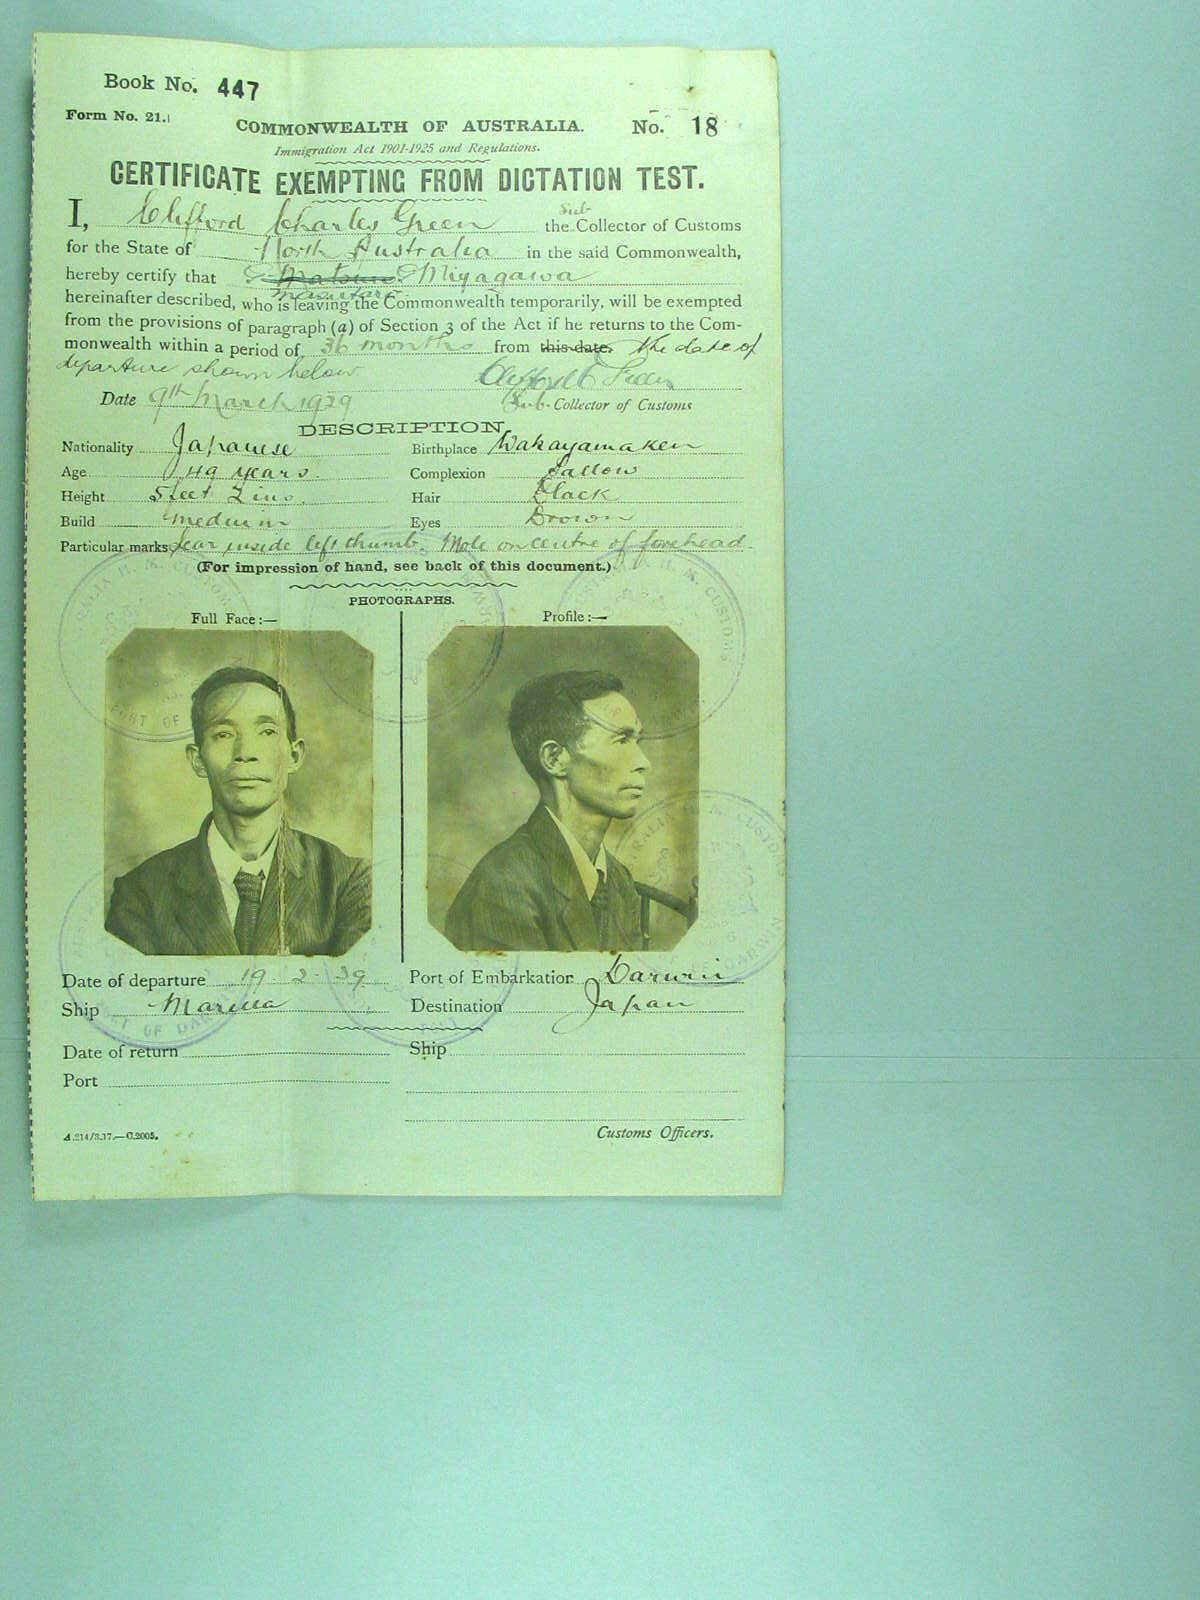 Book No. 447
Form No. 21.
COMMONWEALTH OF AUSTRALIA. No. 18
Immigration Act 1901-1925 and Regulations.
CERTIFICATE EXEMPTING FROM DICTATION TEST.
I, Clifford Charles Green the Sub Collector of Customs
for the State of North Australia in the said Commonwealth,
hereby certify that Miyagawa
hereinafter described, who is leaving the Commonwealth temporarily, will be exempted
from the provisions of paragraph (a) of Section 3 of the Act if he returns to the Com-
monwealth within a period of 36 months from this date. the date of
departure shown below
Date 9th March 1929 Sub- Collector of Customs
DESCRIPTION
Nationality Japanese Birthplace Wakayamaken
Age 49 years. Complexion Sallow
Height 5 feet 2 ins. Hair Black
Build medium Eyes Brown
Particular marks Scar inside left thumb. Mole on centre of forehead.
(For impression of hand, see back of this document.)
PHOTOGRAPHS.
Full Face:— Profile:—
Date of departure 19-2-39 Port of Embarkation Darwin
Ship Marella Destination Japan
Date of return Ship
Port
A.214/3.17.—C.2005. Customs Officers.